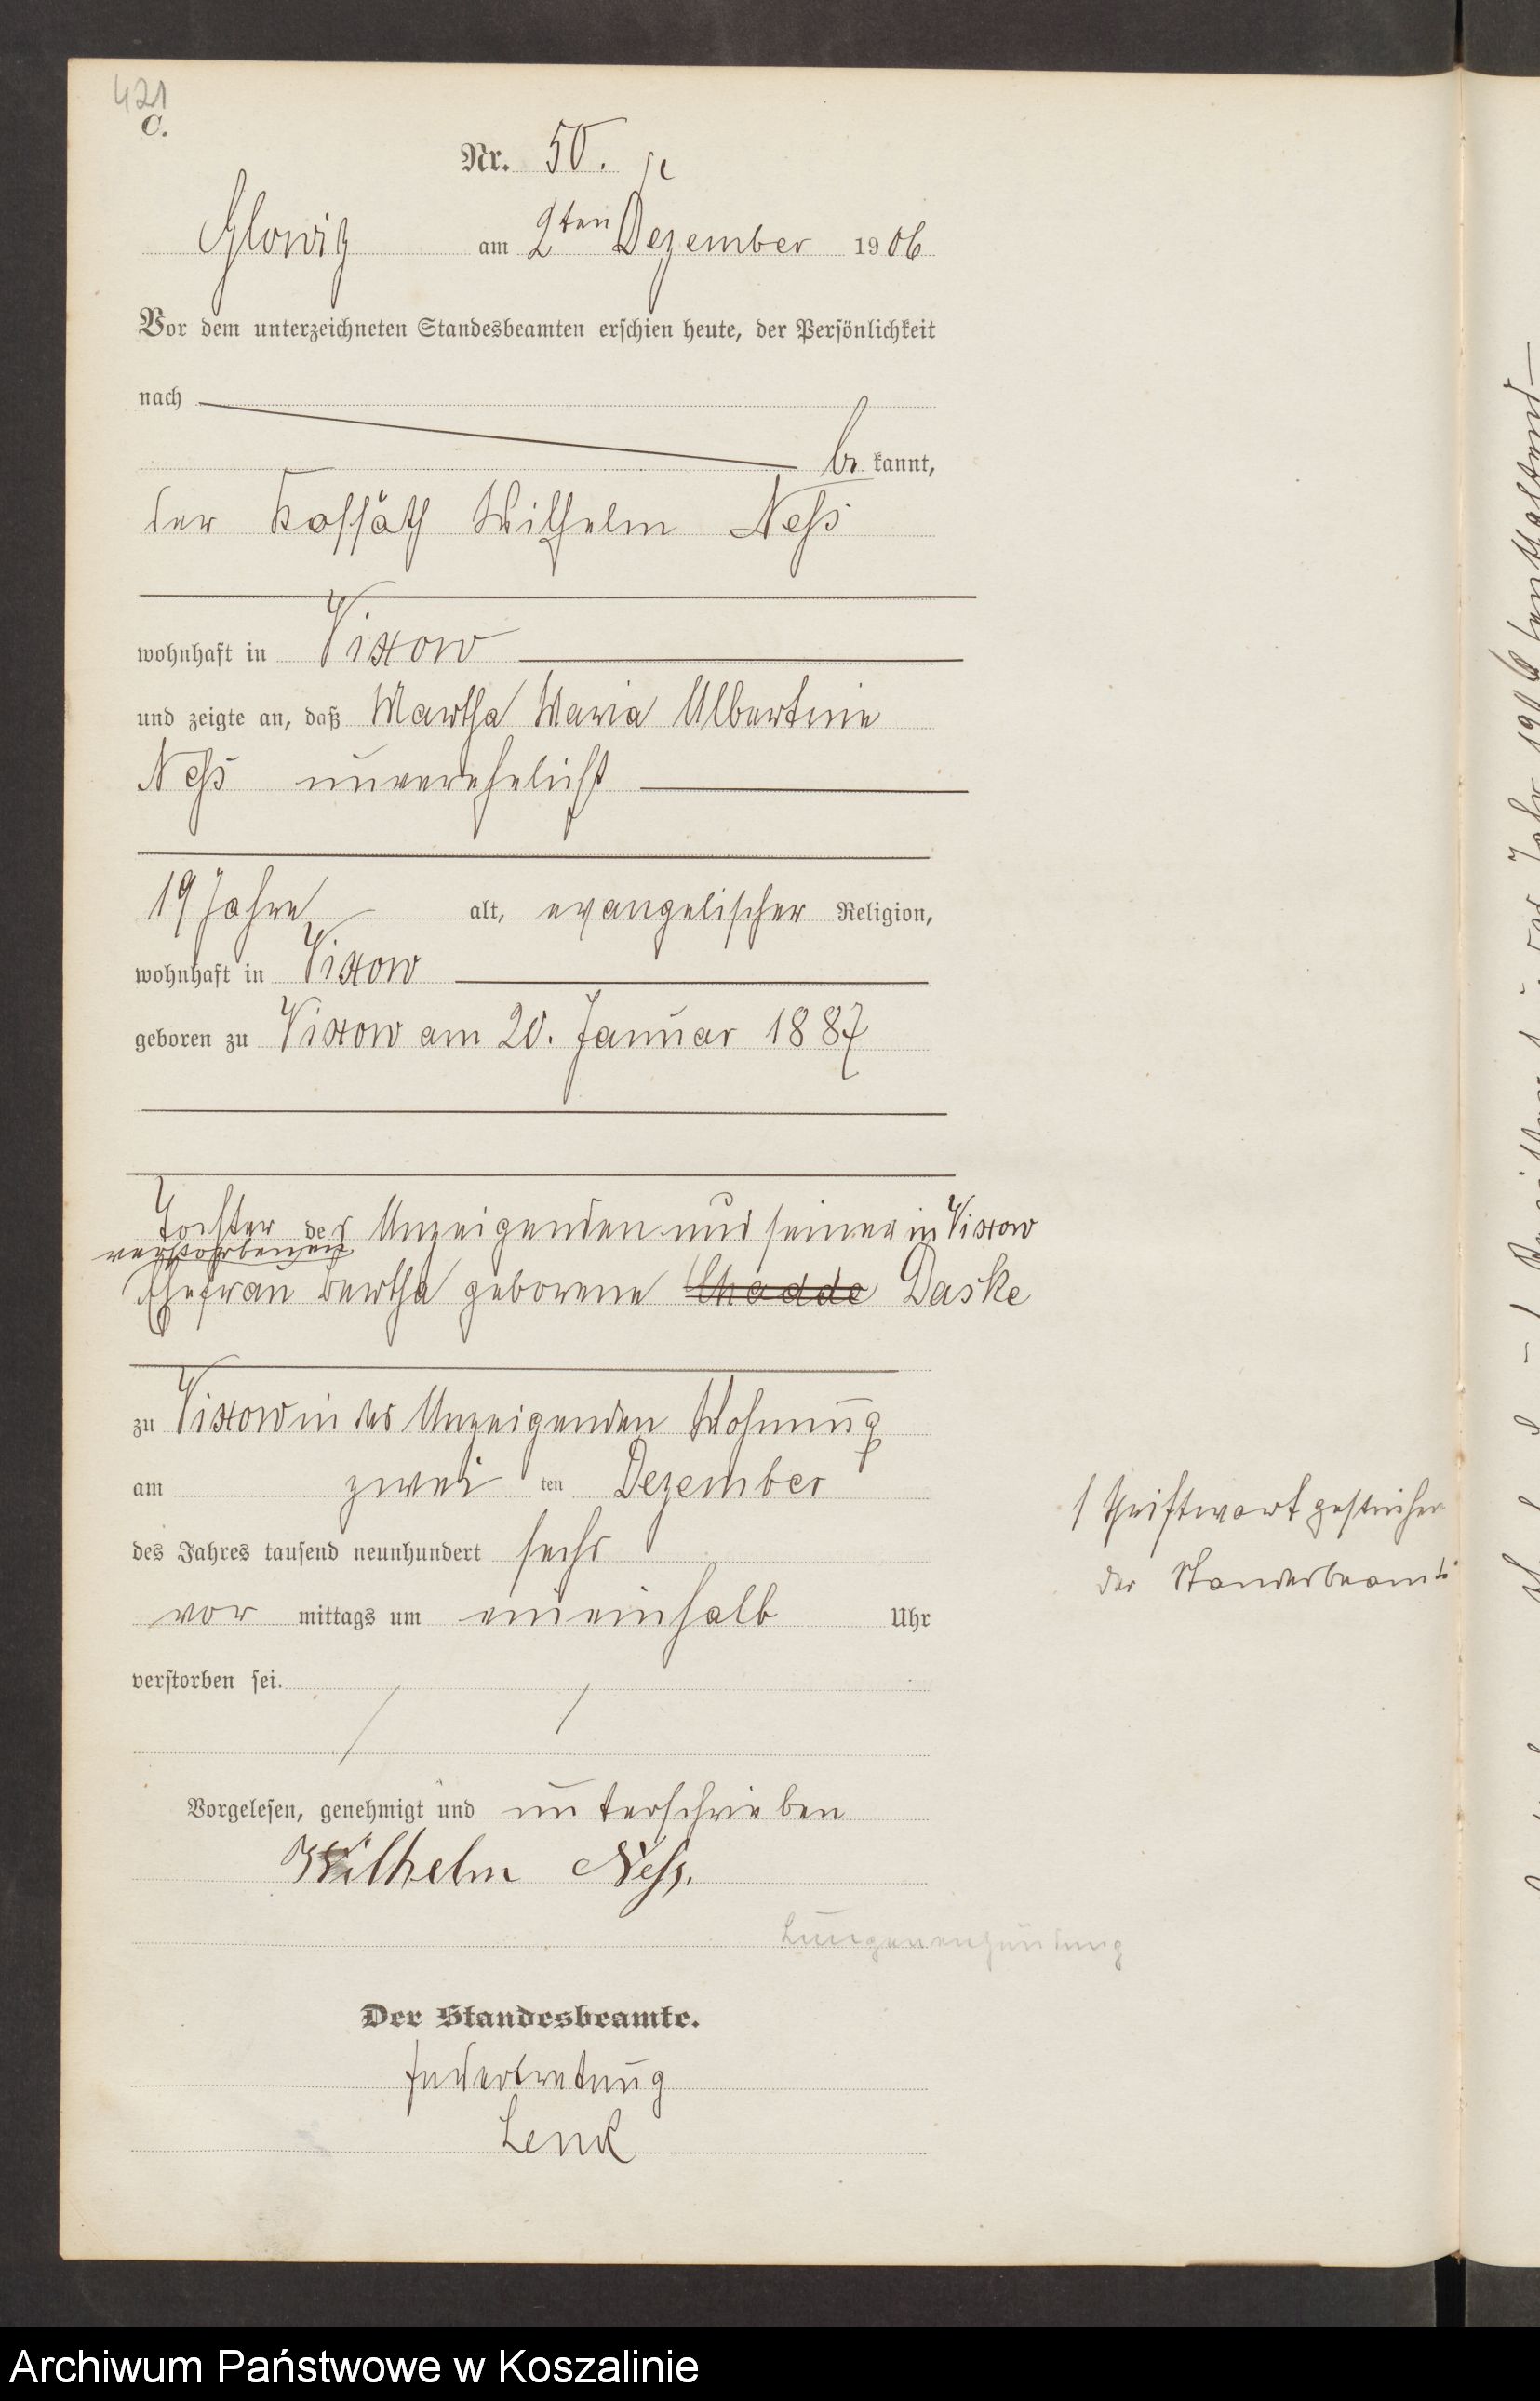 421
C.
Nr. 50.
Glowitz am 2ten Dezember 1906
Vor dem unterzeichneten Standesbeamten erschien heute, der Persönlichkeit
nach
be kannt,
der Kossäth Wilhelm Neß
wohnhaft in Vixow
und zeigte an, daß Martha Maria Albertine
Neß unverehelicht
19 Jahre alt, evangelischer Religion,
wohnhaft in Vixow
geboren zu Vixow am 20. Januar 1887
Tochter des Anzeigenden und seiner in Vixow
verstorbenen
Ehefrau Bertha geborene Daske
zu Vixow in des Anzeigenden Wohnung
am zwei ten Dezember
des Jahres tausend neunhundert sechs
vor mittags um eineinhalb Uhr
verstorben sei.
Vorgelesen, genehmigt und unterschrieben
Wilhelm Neß.
Lungenentzündung
Der Standesbeamte.
In Vertretung
1 Schriftwort gestrichen
der Standesbeamte
Archiwum Państwowe w Koszalinie